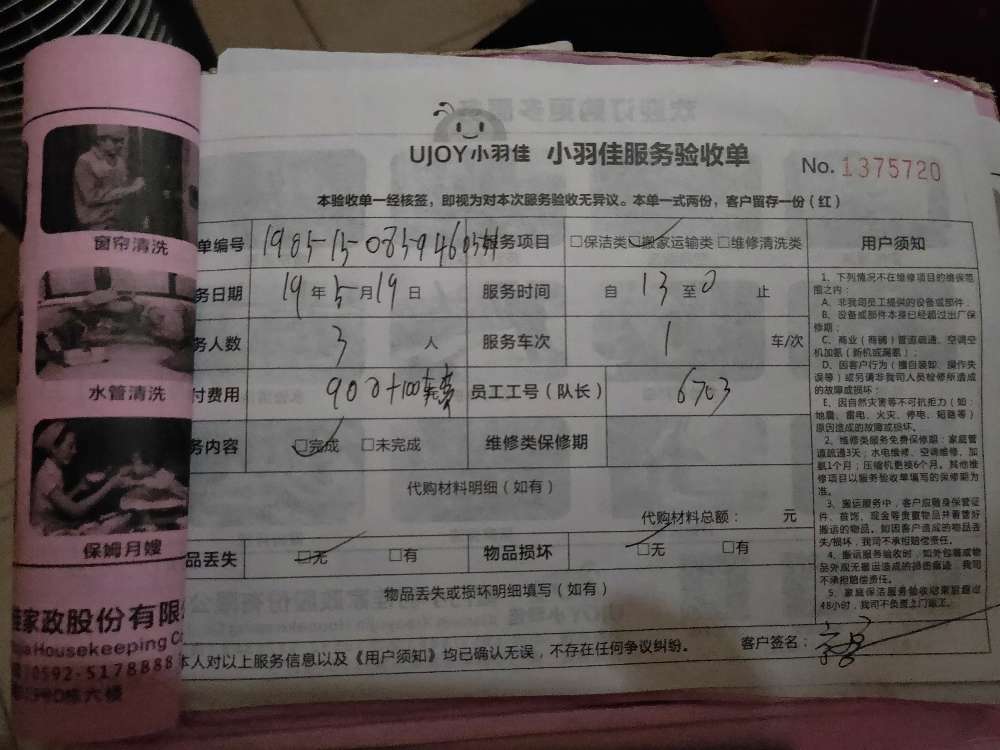 UJOY小羽佳 小羽佳服务验收单
No. 1375720
本验收单一经核签，即视为对本次服务验收无异议。本单一式两份，客户留存一份（红）
单编号 服务项目 □保洁类 □搬家运输类 □维修清洗类 用户须知
务日期 19年5月19日 服务时间 自 13 至 0 止
务人数 3 人 服务车次 1 车/次
付费用 员工工号（队长） 6703
务内容 □完成 □未完成 维修类保修期
代购材料明细（如有）
代购材料总额： 元
品丢失 □无 □有 物品损坏 □无 □有
物品丢失或损坏明细填写（如有）
本人对以上服务信息以及《用户须知》均已确认无误，不存在任何争议纠纷。 客户签名：
1、下列情况不在维修项目的维保范
围之内：
A、非我司员工提供的设备或部件；
B、设备或部件本身已经超过出厂保
修期；
C、商业（商铺）管道疏通、空调空
机加氨（新机或漏氨）；
D、因客户行为（擅自装卸、操作失
误等）或另请非我司人员检修所造成
的故障或损坏；
E、因自然灾害等不可抗拒力（如：
地震、雷电、火灾、停电、短路等）
原因造成的故障或损坏。
2、维修类服务免费保修期：家庭管
道疏通3天；水电维修、空调维修、加
氨1个月；压缩机更换6个月。其他维
修项目以服务验收单填写的保修期为
准。
3、搬运服务中，客户应随身保管证
件、首饰、现金等贵重物品并看管好
搬运的物品。如因客户造成的物品丢
失/损坏，我司不承担赔偿责任。
4、搬运服务验收时，如外包装或物
品外观无搬运造成的损伤痕迹，我司
不承担赔偿责任。
5、家庭保洁服务验收结束后超过
48小时，我司不负责上门返工。
窗帘清洗
水管清洗
保姆月嫂
佳家政股份有限
Housekeeping Co
0592-5178888